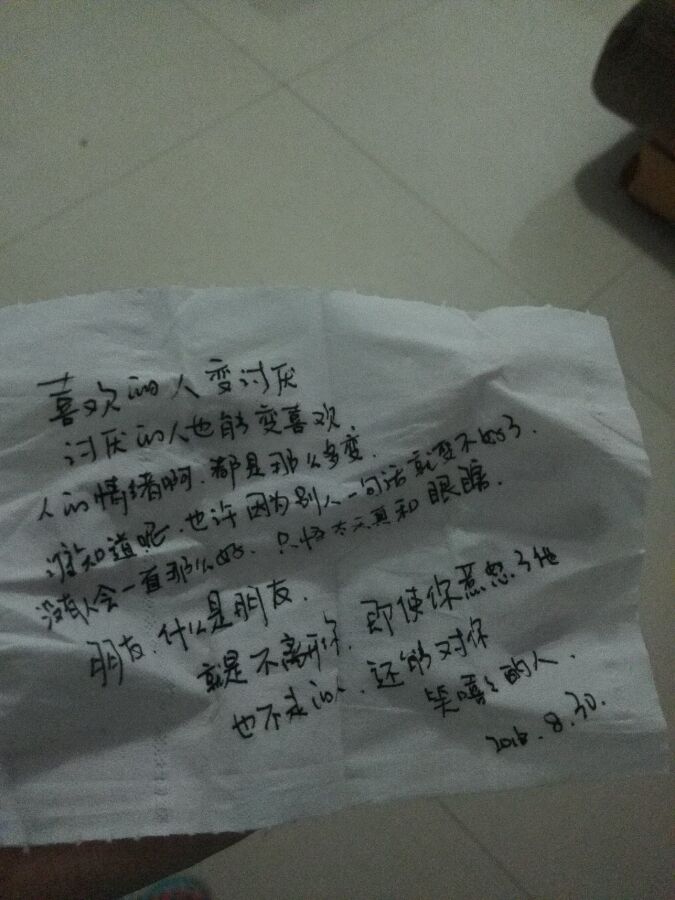 喜欢的人变讨厌
讨厌的人也能变喜欢.
人的情绪啊.都是那么多变.
谁知道呢.也许因为别人一句话就变不好了.
没有人会一直那么好.只怪太天真和眼瞎.
朋友.什么是朋友.
就是不离开你.即使你惹怒了他
也不走的人.还能对你
笑嘻嘻的人.
2016.8.30.